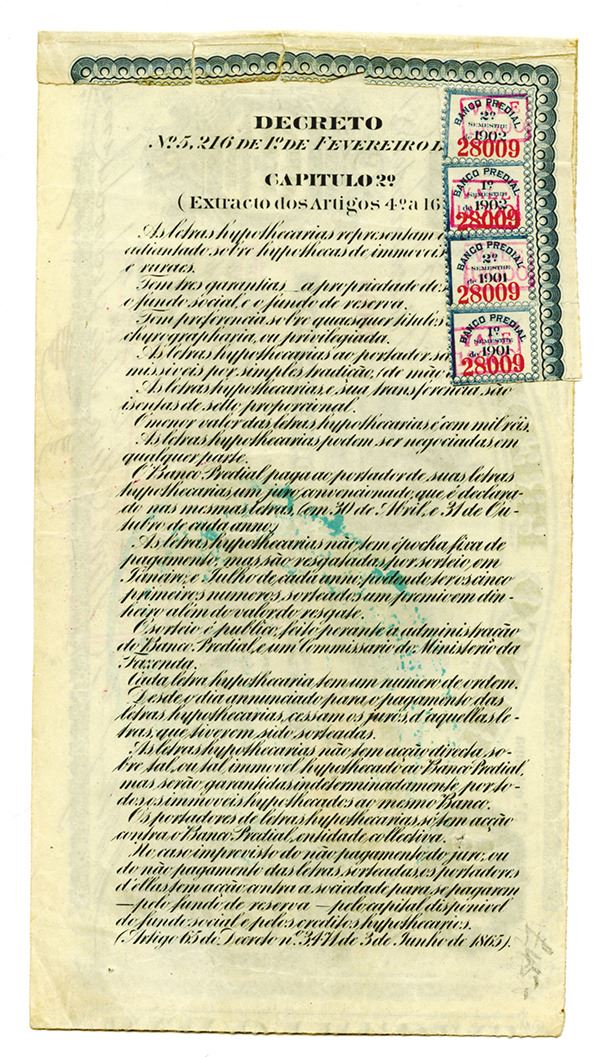 DECRETO
Nº 5,216 DE 1º DE FEVEREIRO D
CAPITULO 2º
(Extracto dos Artigos 4º a 16
As letras hypothecarias representam
adiantado sobre hypothecas de immoveis
e ruraes.
Tem tres garantias _ a propriedade dos
o fundo social, e o fundo de reserva.
Tem preferencia sobre quaesquer titulos
chyrographaria, ou privilegiada.
As letras hypothecarias ao portador são
missiveis por simples tradição, (de mão
As letras hypothecarias, e sua transferencia, são
isentas de sello proporcional.
O menor valor das letras hypothecarias é cem mil réis.
As letras hypothecarias podem ser negociadas em
qualquer parte.
O Banco Predial paga ao portador de suas letras
hypothecarias, um juro convencionado, que é declara-
do nas mesmas letras, (em 30 de Abril, e 31 de Ou-
tubro de cada anno.)
As letras hypothecarias não tem épocha fixa de
pagamento; mas são resgatadas por sorteio, em
Janeiro, e Julho de cada anno; podendo ter os cinco
primeiros numeros, sorteados, um premio em din-
heiro além do valor do resgate.
O sorteio é publico, feito perante a administração
do Banco Predial, e um Commissario do Ministerio da
Fazenda.
Cada letra hypothecaria tem um numero de ordem.
Desde o dia annunciado para o pagamento das
letras hypothecarias, cessam os juros, d'aquellas le-
tras, que tiverem sido sorteadas.
As letras hypothecarias não tem acção directa, so-
bre tal, ou tal immovel hypothecado ao Banco Predial,
mas serão garantidas indeterminadamente, por to-
dos os immoveis hypothecados ao mesmo Banco.
Os portadores de letras hypothecarias, só tem acção
contra o Banco Predial, entidade collectiva.
No caso improvisto do não pagamento do juro, ou
do não pagamento das letras, sorteadas, os portadores
d'ellas, tem acção contra a sociedade para se pagarem
—pelo fundo de reserva —pelo capital disponivel
do fundo social e pelos creditos hypothecarios.
(Artigo 65 do Decreto nº 3471 de 3 de Junho de 1865).
BANCO PREDIAL
2º
SEMESTRE
de 1902
28009
BANCO PREDIAL
1º
SEMESTRE
de 1902
28009
BANCO PREDIAL
2º
SEMESTRE
de 1901
28009
BANCO PREDIAL
1º
SEMESTRE
de 1901
28009